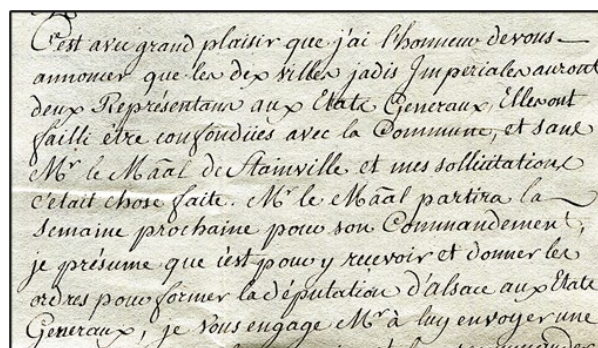 C'est avec grand plaisir que j'ai l'honneur de vous
annoncer que les dix villes jadis Imperiales auront
deux Représentans aux Etats Generaux, Elles ont
failli être confondües avec la Commune, et sans
Mr le Maãl de Stainville et mes sollicitations
c'était chose faite. Mr le Maãl partira la
semaine prochaine pour son Commandement,
je présume que c'est pour y recevoir et donner les
ordres pour former la députation d'alsace aux Etats
Generaux, je vous engage Mr à luy envoyer une